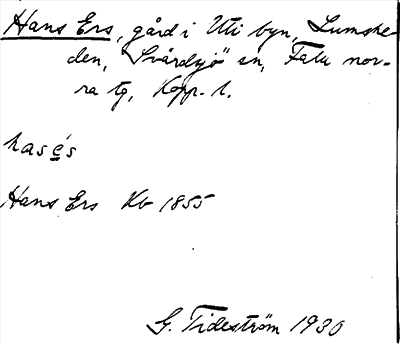 Hans Ers, gård i Uti byn, Lumshe-
den, Svärdsjö sn, Falu nor-
ra tg, Kopp. l.
hasès
Hans Ers Kb 1855
G. Tideström 1930